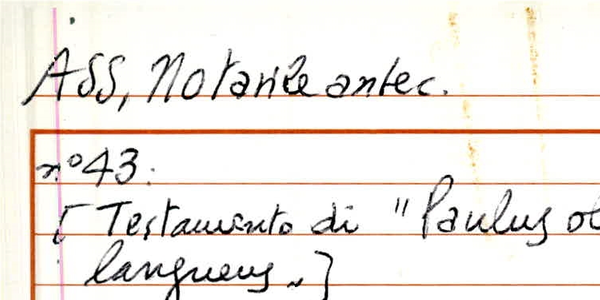 ASS, Notarile antec.
n° 43:
[Testamento di "Paulus ol
languens„]